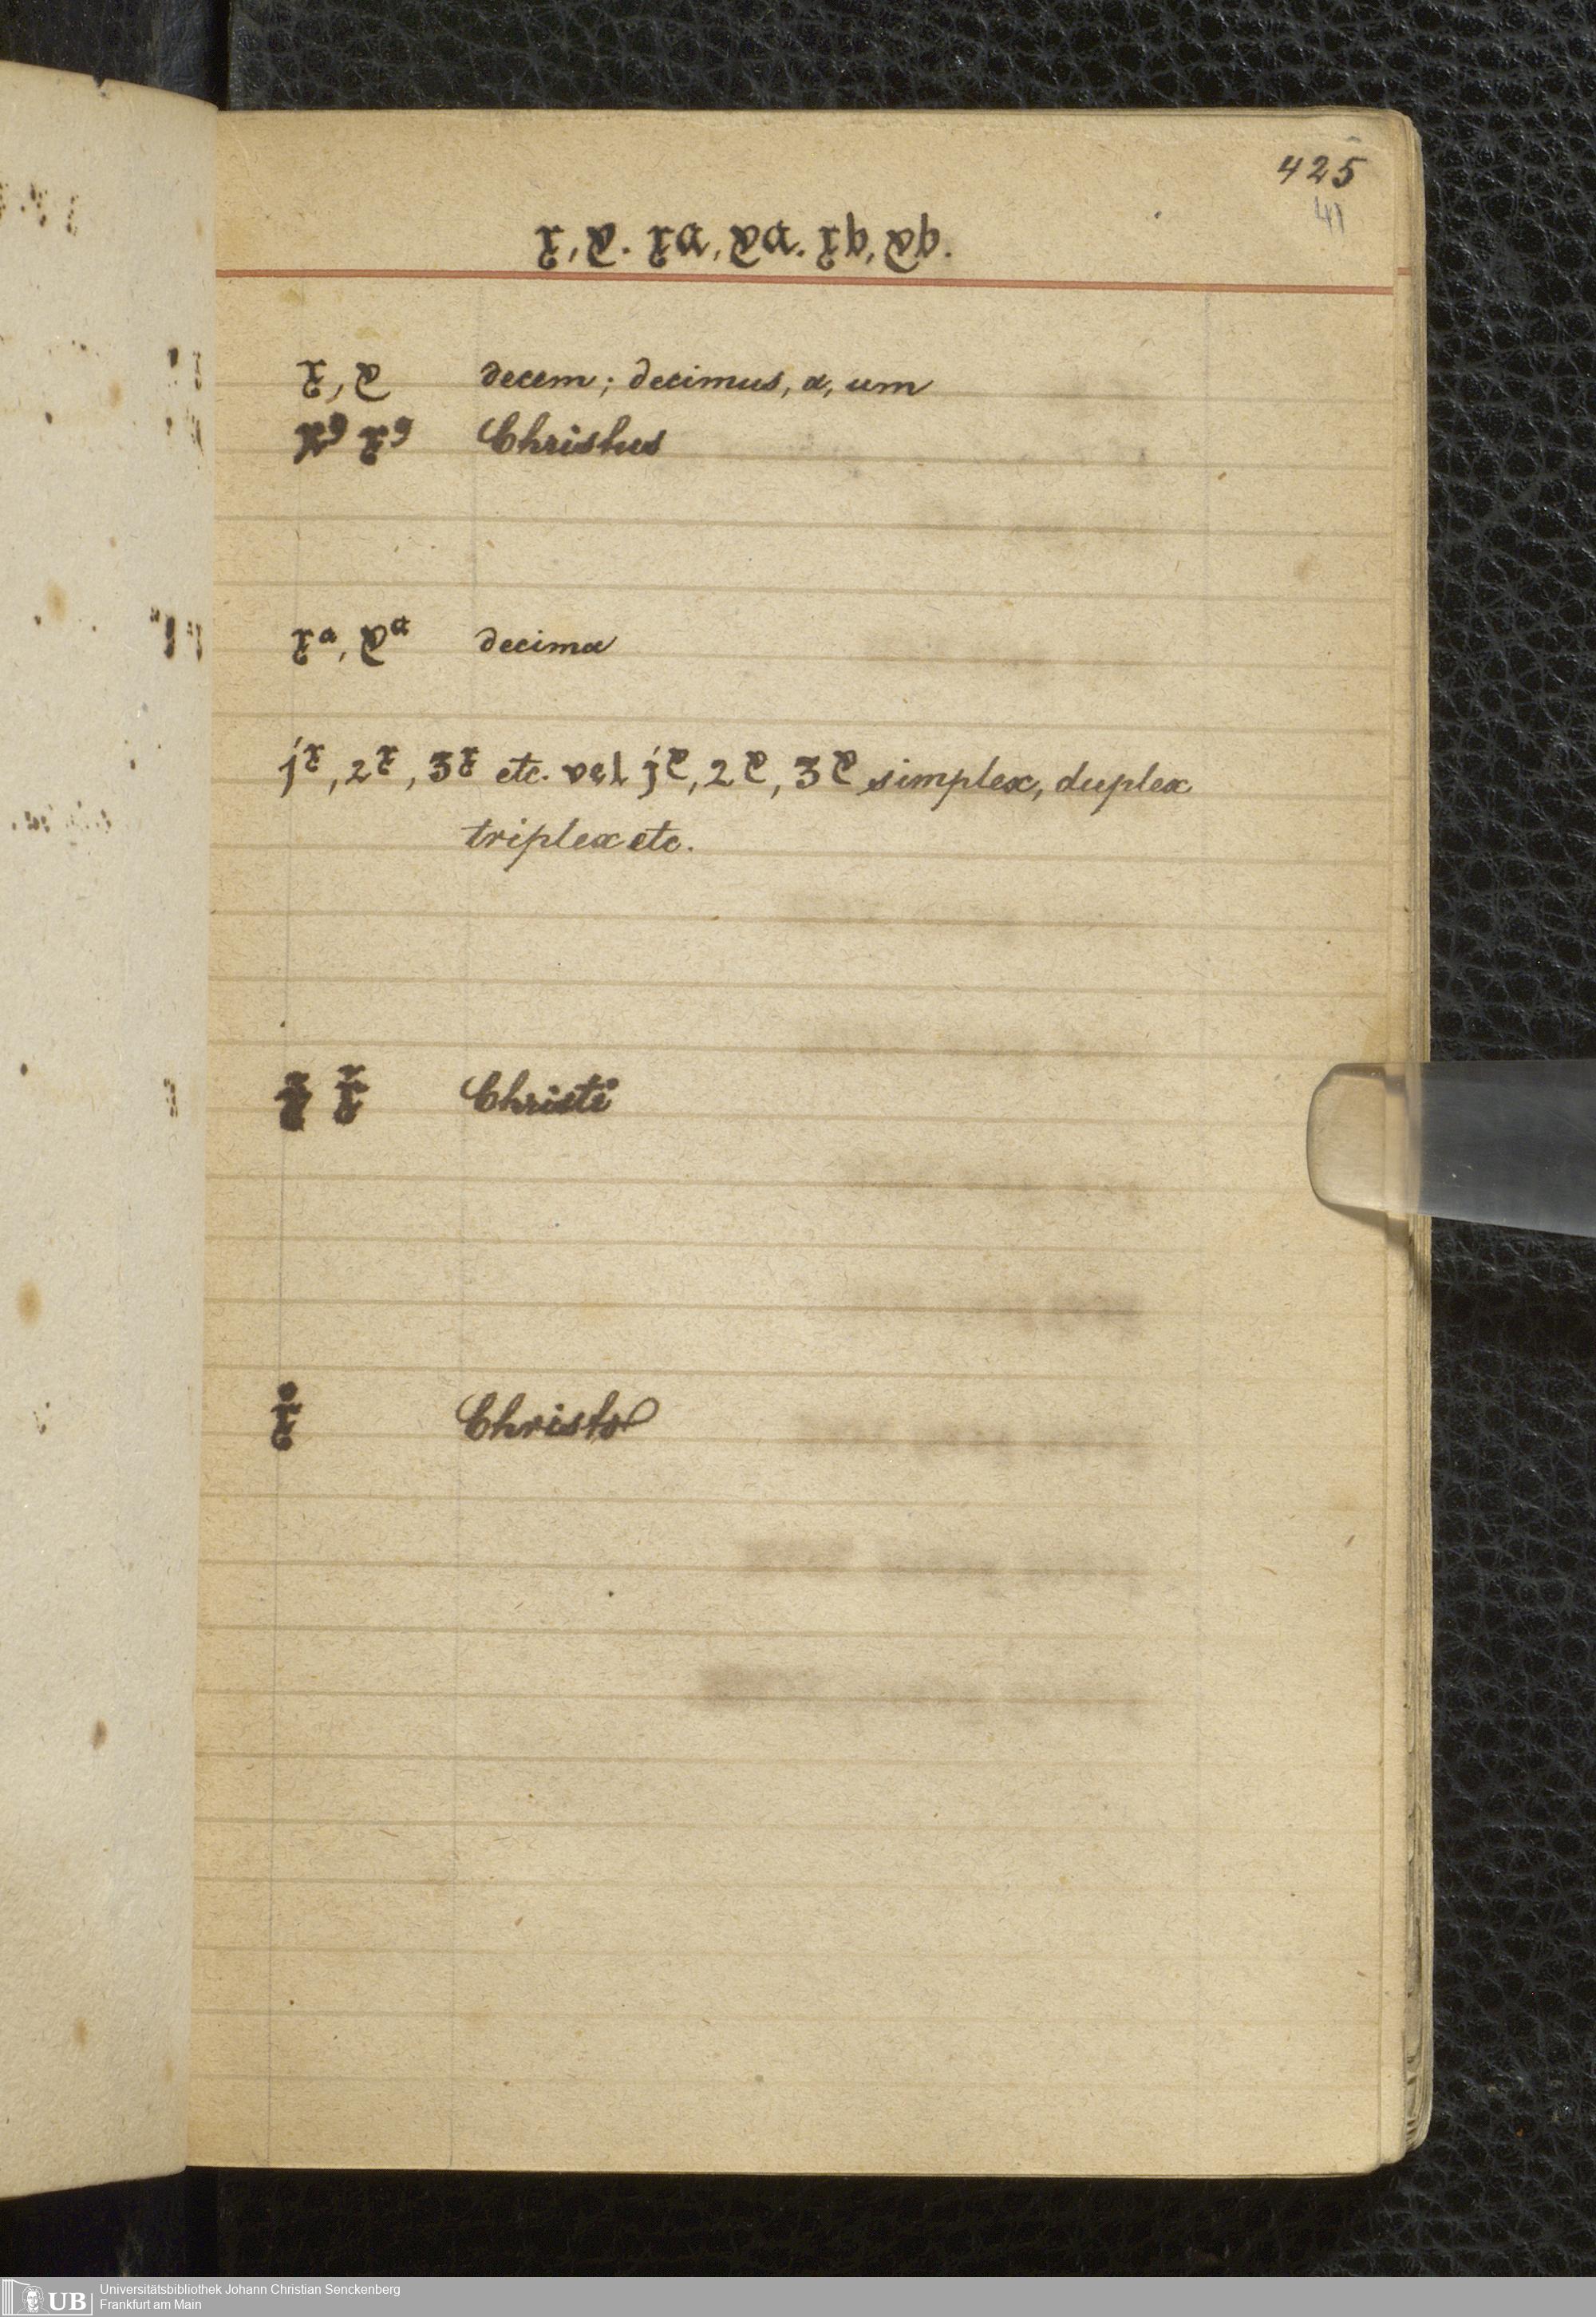 425
41
x, x. xa, xa. xb, xb.
x, x decem; decimus, a, um
xꝰ xꝰ Christus
xᵃ, xᵃ decima
jˣ, 2ˣ, 3ˣ etc. vel jˣ, 2ˣ, 3ˣ simplex, duplex
triplex etc.
Christi
x° Christo
UB Universitätsbibliothek Johann Christian Senckenberg
Frankfurt am Main